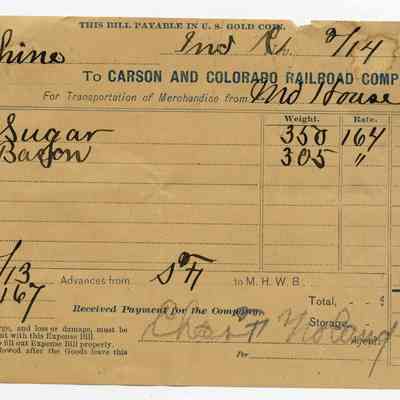 THIS BILL PAYABLE IN U. S. GOLD COIN.
Ind 9/14
To CARSON AND COLORADO RAILROAD COMP
For Transportation of Merchandise from Md House
Weight. Rate.
Sugar 350 164
Bacon 305 "
/13 Advances from to M. H. W. B.
167
Total, - - $
Received Payment for the Company,
Storage,
Agent.
rge, and loss or damage, must be
nt with this Expense Bill.
to fill out Expense Bill properly.
llowed after the Goods leave this
Per